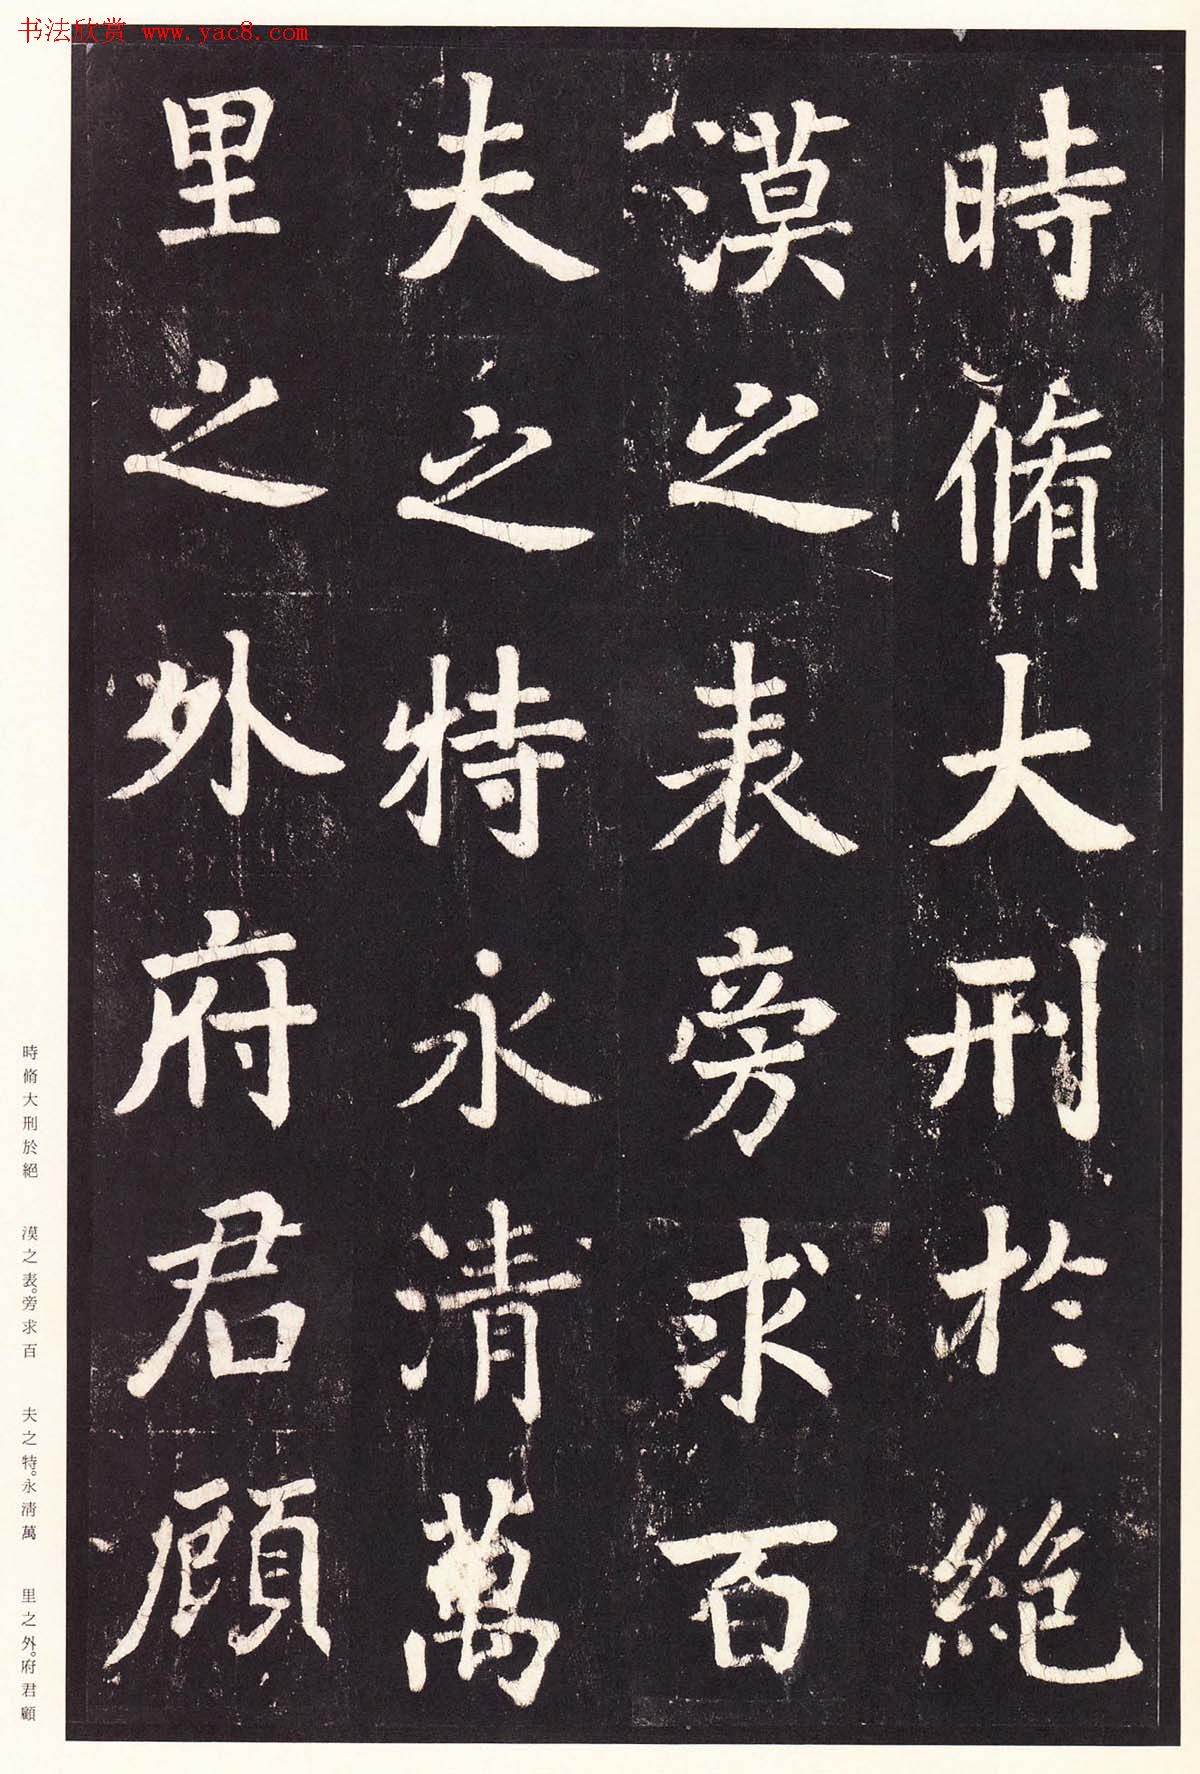 书法欣赏 www.yac8.com
時脩大刑於絕
漠之表旁求百
夫之特永清萬
里之外府君顧
時脩大刑於絕 漠之表。旁求百 夫之特。永淸萬 里之外。府君顧